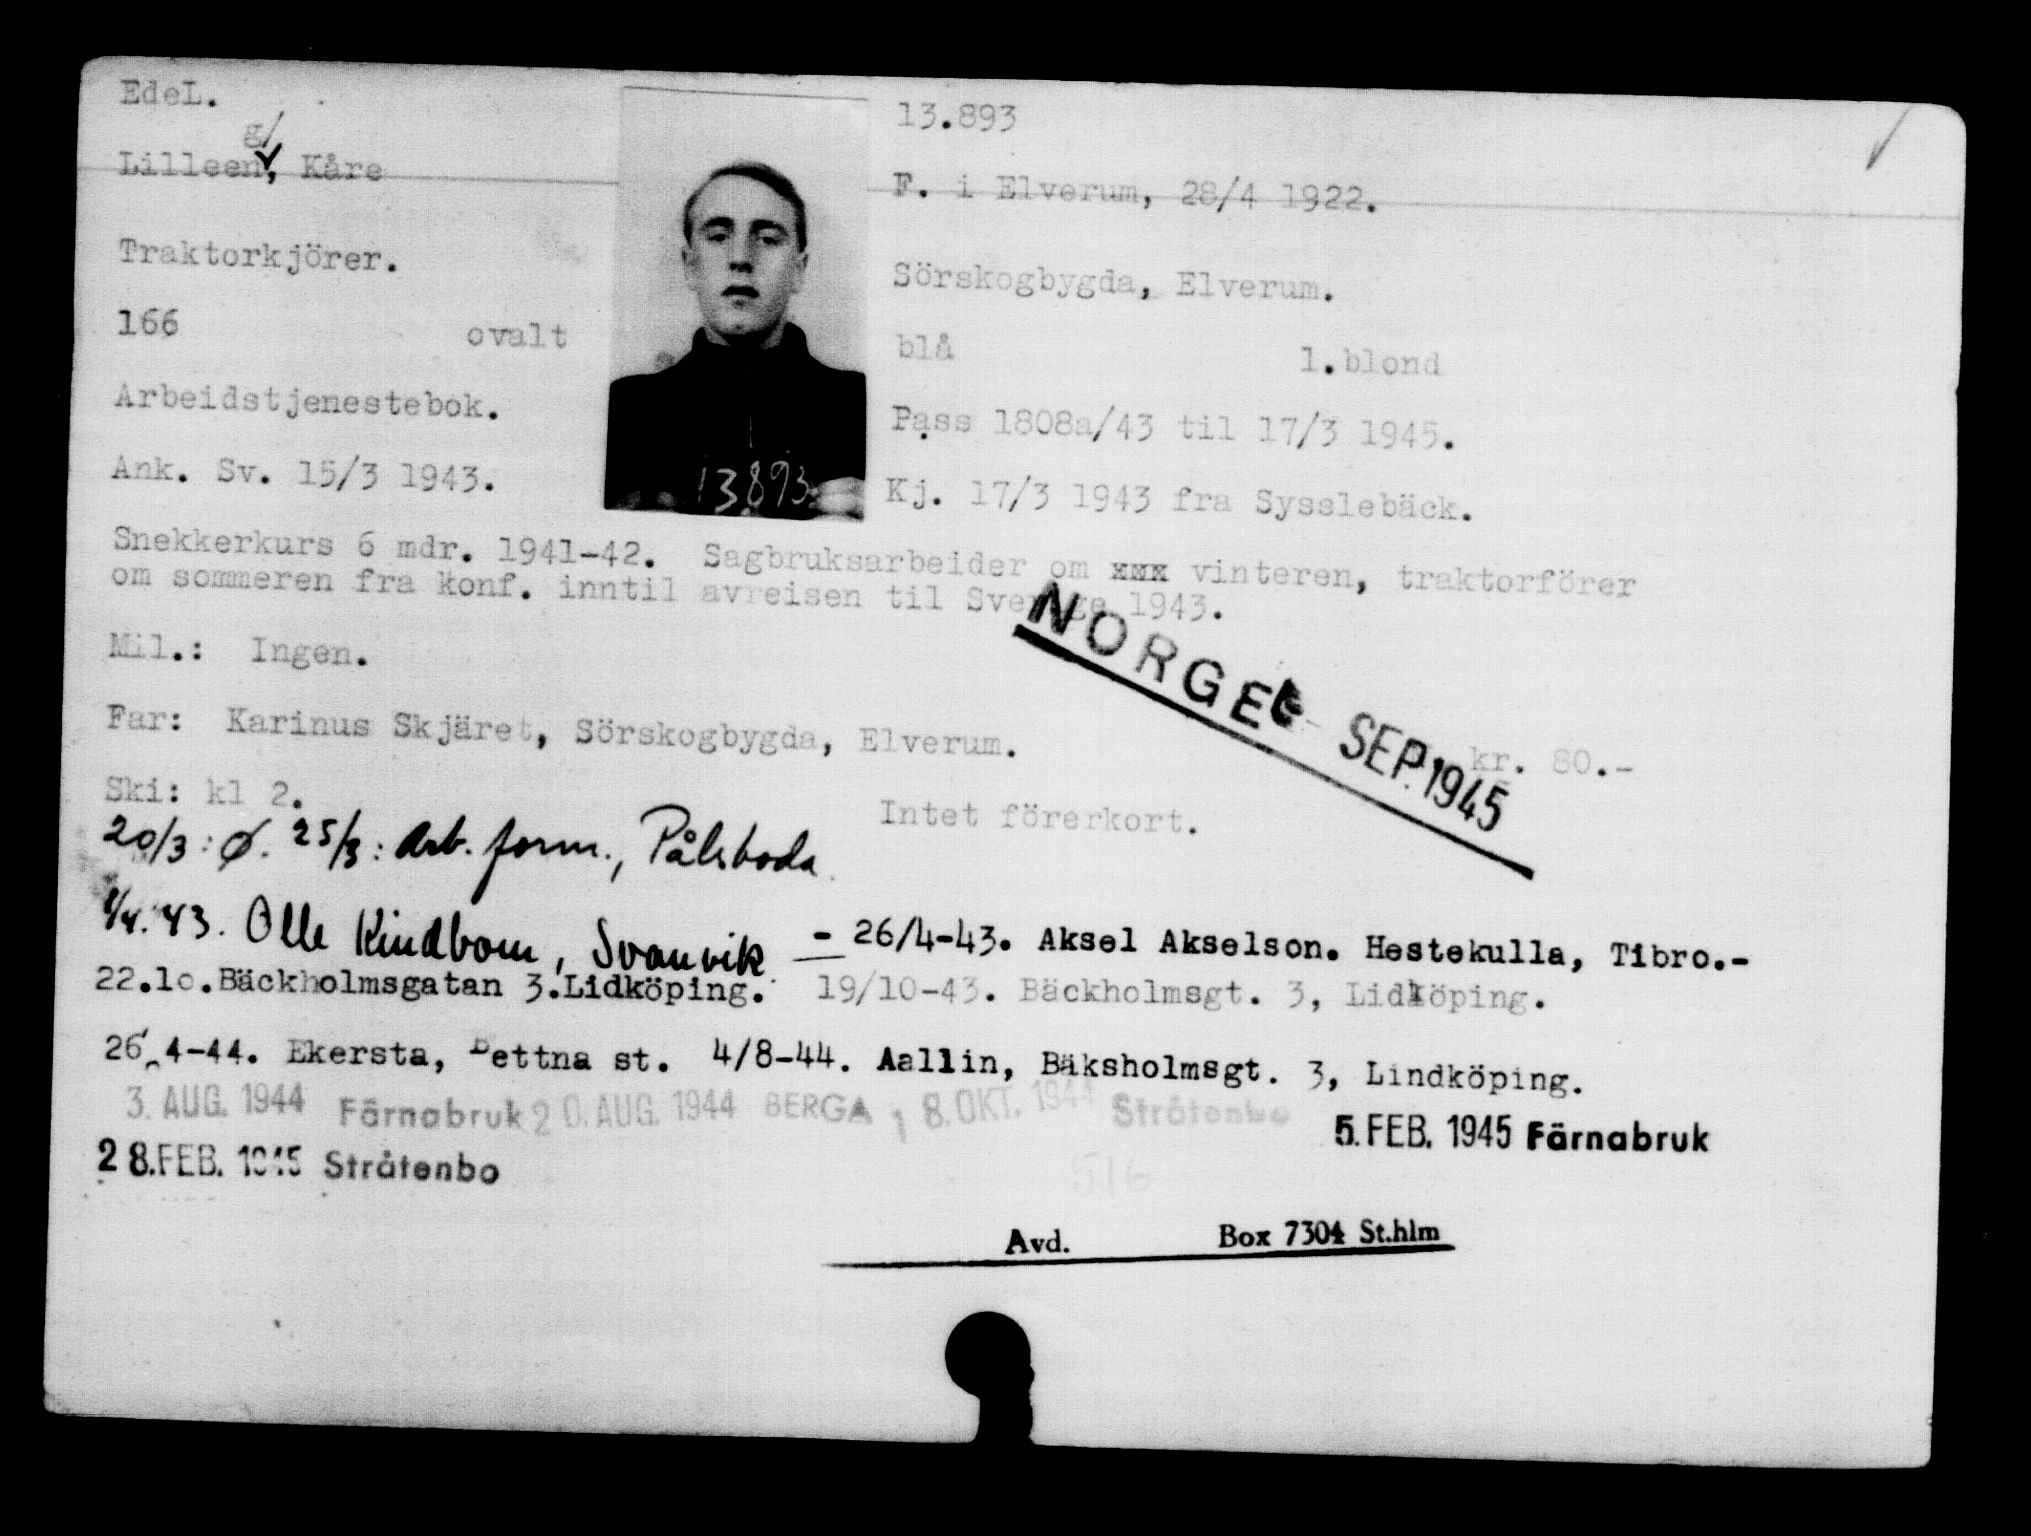 EdeL.
13.893
g/
Lilleen, Kåre
F. i Elverum, 28/4 1922.
Traktorkjörer.
Sörskogbygda, Elverum.
166 ovalt
blå 1.blond
Arbeidstjenestebok.
Pass 1808a/43 til 17/3 1945.
Ank. Sv. 15/3 1943.
13.893
Kj. 17/3 1943 fra Sysslebäck.
Snekkerkurs 6 mdr. 1941-42. Sagbruksarbeider om xxx vinteren, traktorförer
om sommeren fra konf. inntil avreisen til Sverige 1943.
NORGE SEP. 1945
Mil.: Ingen.
Far: Karinus Skjäret, Sörskogbygda, Elverum.
kr. 80.-
Ski: kl 2.
Intet förerkort.
20/3: Ø. 25/3: Arb. form., Pålsboda.
1/4.43. Olle Kindbom, Svanvik - 26/4-43. Aksel Akselson. Hestekulla, Tibro.-
22.10.Bäckholmsgatan 3.Lidköping. 19/10-43. Bäckholmsgt. 3, Lidköping.
26.4-44. Ekersta, Bettna st. 4/8-44. Aallin, Bäksholmsgt. 3, Lindköping.
3. AUG. 1944 Färnabruk 20. AUG. 1944 BERGA 18. OKT. 1944 Stråtenbo
5. FEB. 1945 Färnabruk
28. FEB. 1945 Stråtenbo
516
Avd. Box 7304 St.hlm